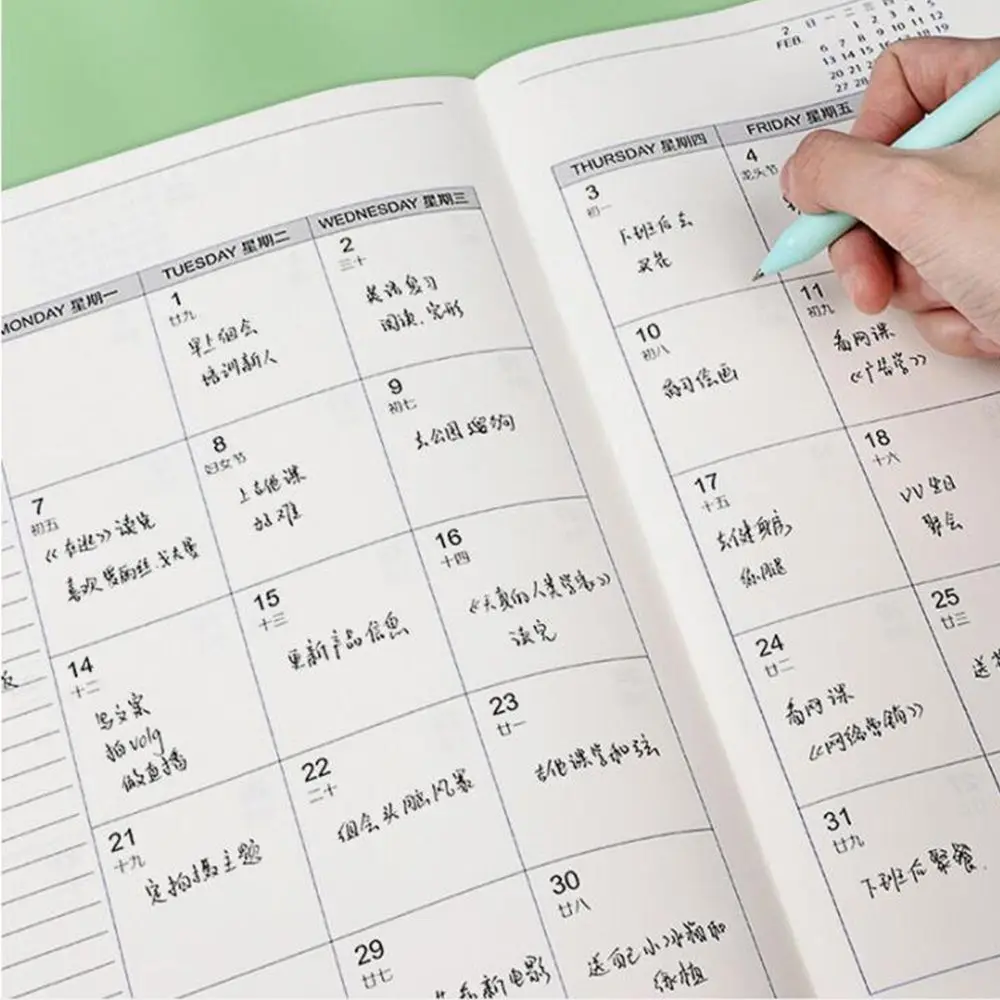 2 日 一 二 三 四
FEB. 1 2 3 4 5
6 7 8 9 10 11 12
13 14 15 16 17 18 19
20 21 2
27 28
MONDAY 星期一
TUESDAY 星期二
WEDNESDAY 星期三
THURSDAY 星期四
FRIDAY 星期五
1
廿九
早上组会
培训新人
2
三十
英语复习
阅读.完形
3
初一
下班后去
买花
4
龙头节
7
初五
《在逃》读完
喜欢
8
妇女节
上吉他课
好难
9
初七
去公园遛狗
10
初八
练习绘画
11
初九
看网课
《广告学》
14
十二
写文案
拍volg
做直播
15
十三
更新产品信息
16
十四
《天真的人类学家》
读完
17
十五
去健身房
练腿
18
十六
VV生日
聚会
21
十九
定拍摄主题
22
二十
组会头脑风暴
23
廿一
吉他课学和弦
24
廿二
看网课
《网络营销》
25
廿三
送
29
廿七
看新电影
30
廿八
送自己小冰箱和
绿植
31
廿九
下班后聚餐.